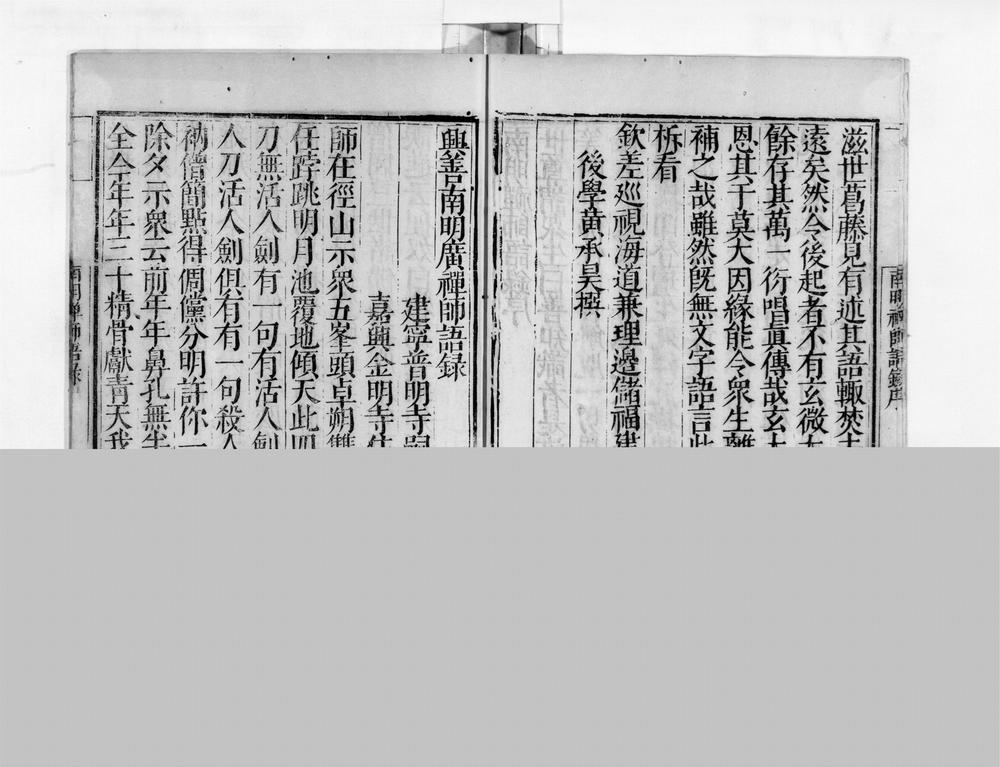 滋世葛藤見有述其語輙焚
遠矣然令後起者不有玄微
餘存其萬一衍唱眞傳哉玄
恩其于莫大因緣能令衆生離
補之哉雖然旣無文字語言此
柝看
欽差巡視海道兼理邊儲福建
後學黄承昊撰
南明禪師語錄序
興善南明廣禪師語録
建寧普明寺
嘉興金明寺
師在徑山示衆五峯頭卓朔
任踍跳明月池覆地傾天此四
刀無活人劍有一句有活人劍
人刀活人劍俱有有一句殺人
衲僧簡點得倜儻分明許你一
除夕示衆云前年年鼻孔無半
全今年年三十精骨獻青天我